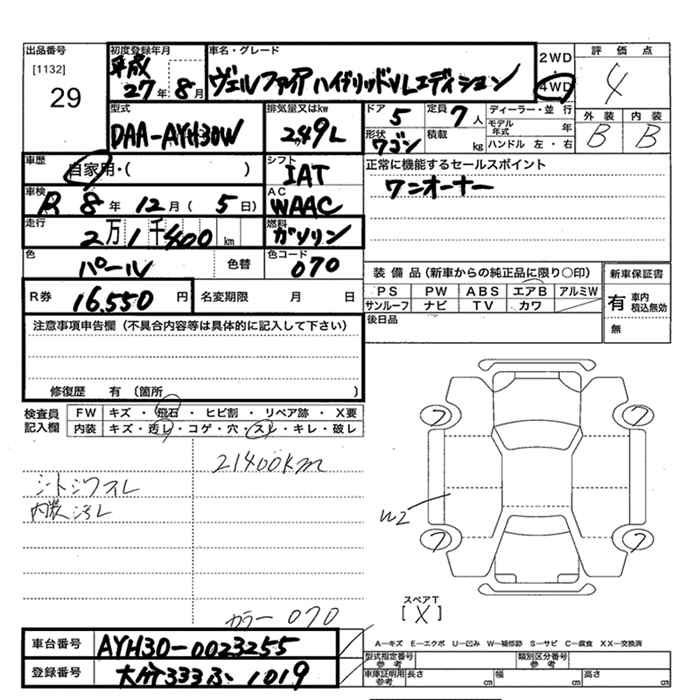 出品番号
[1132]
29
初度登録年月
平成
27年 8月
車名・グレード
ヴェルファイア ハイブリッドVLエディション
2WD
4WD
評価点
4
外装 内装
B B
型式
DAA-AYH30W
排気量又はkw
2.49L
ドア
5
定員
7人
形状
ワゴン
積載
kg
ディーラー・並行
モデル年式 年
ハンドル 左・右
車歴
自家用・( )
シフト
IAT
正常に機能するセールスポイント
ワンオーナー
車検
R 8年 12月 ( 5日)
AC
WAAC
走行
2万1千400km
燃料
ガソリン
色
パール
色替
色コード
070
R券
16,550円
名変期限 月 日
装備品(新車からの純正品に限り○印)
PS PW ABS エアB アルミW
サンルーフ ナビ TV カワ
後日品
新車保証書
有 車内積込無効
無
注意事項申告欄(不具合内容等は具体的に記入して下さい)
修復歴 有(箇所 )
検査員記入欄
FW キズ・飛石・ヒビ割・リペア跡・X要
内装 キズ・汚レ・コゲ・穴・スレ・キレ・破レ
21400km
シートシワスレ
内装汚レ
カラー 070
W2
スペアT
[X]
A-キズ E-エクボ U-凹み W-補修跡 S-サビ C-腐食 XX-交換済
車台番号
AYH30-0023255
登録番号
大分333ふ 1019
型式指定番号
参考
類別区分番号
参考
車庫証明用
参考
長さ cm 幅 cm 高さ cm